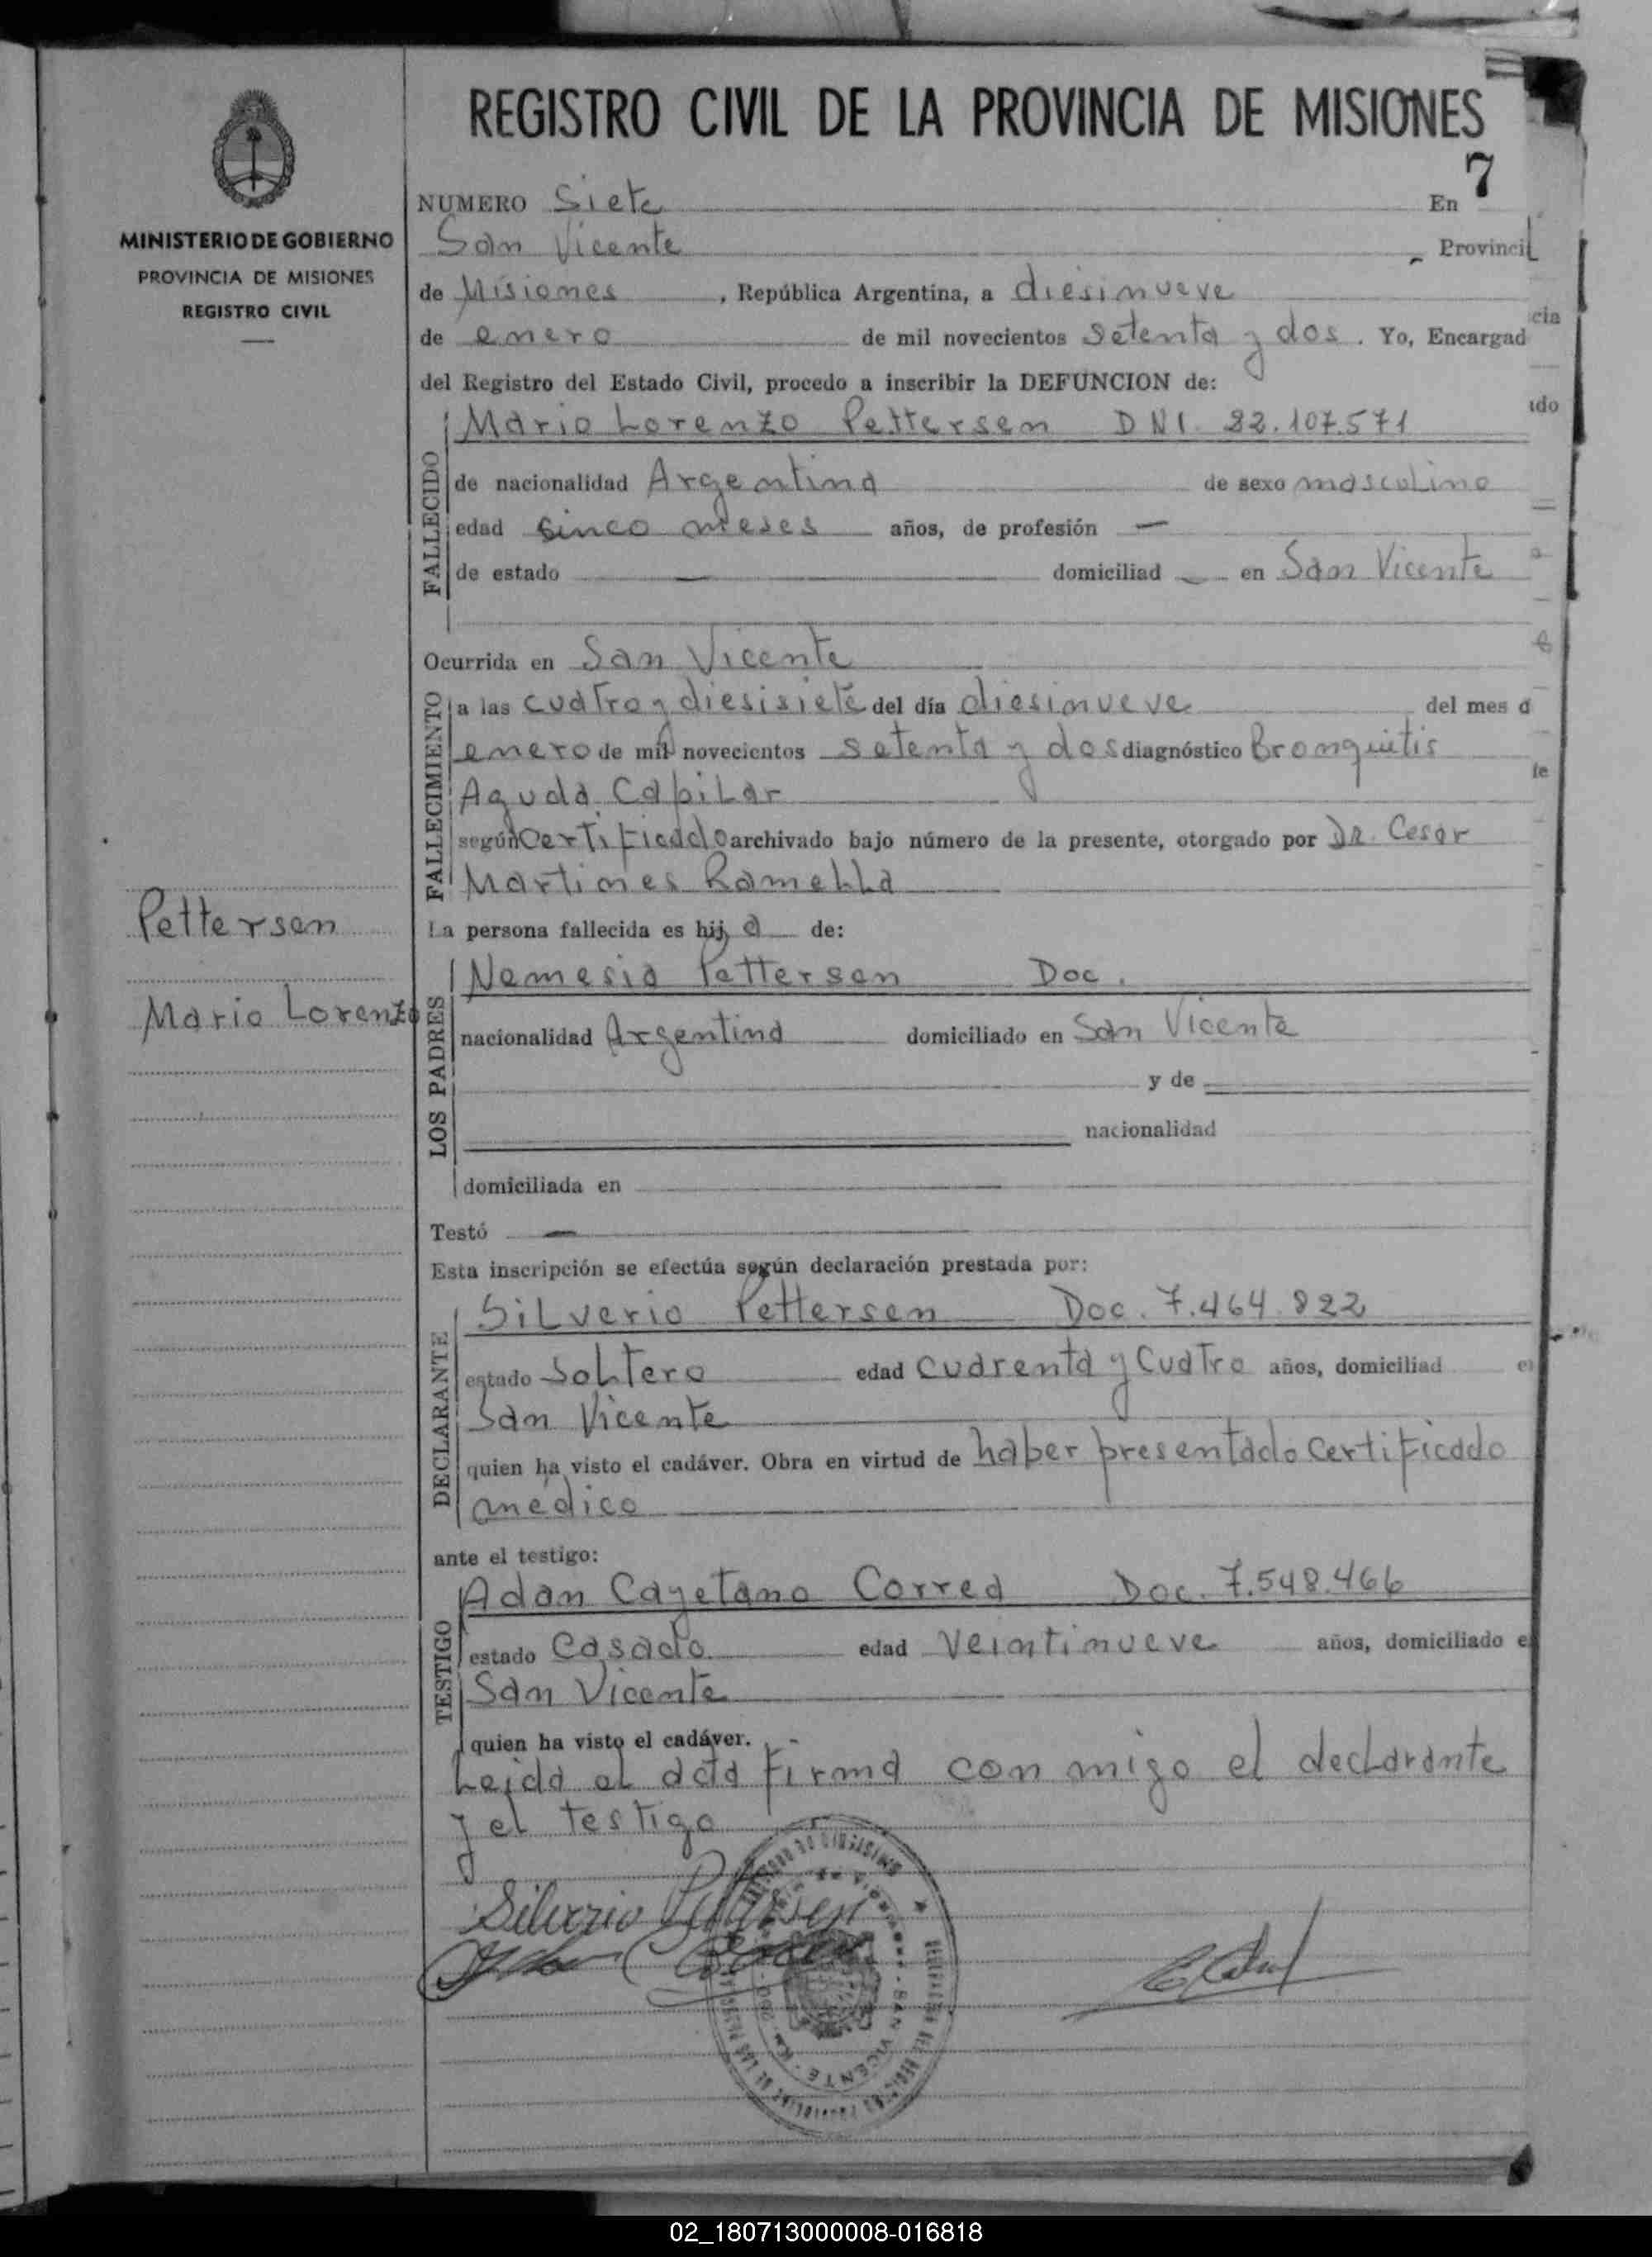 REGISTRO CIVIL DE LA PROVINCIA DE MISIONES
7
MINISTERIO DE GOBIERNO
PROVINCIA DE MISIONES
REGISTRO CIVIL
NUMERO Siete En
San Vicente Provinci
de Misiones, República Argentina, a diesinueve
de enero de mil novecientos setenta y dos. Yo, Encargad
del Registro del Estado Civil, procedo a inscribir la DEFUNCION de:
FALLECIDO
Mario Lorenzo Pettersen DNI 22.107.571
de nacionalidad Argentina de sexo masculino
edad cinco meses años, de profesión —
de estado — domiciliad — en San Vicente
Ocurrida en San Vicente
FALLECIMIENTO
a las cuatro y diesisiete del día diesinueve del mes d
enero de mil novecientos setenta y dos diagnóstico Bronquitis
Aguda Capilar
según certificado archivado bajo número de la presente, otorgado por Dr. Cesar
Martines Ramella
Pettersen
Mario Lorenzo
La persona fallecida es hij o de:
LOS PADRES
Nemesia Pettersen Doc.
nacionalidad Argentina domiciliado en San Vicente
y de
nacionalidad
domiciliada en
Testó —
Esta inscripción se efectúa según declaración prestada por:
DECLARANTE
Silverio Pettersen Doc. 7.464.822
estado Soltero edad cuarenta y cuatro años, domiciliad e
San Vicente
quien ha visto el cadáver. Obra en virtud de haber presentado certificado
médico
ante el testigo:
TESTIGO
Adan Cayetano Correa Doc. 7.548.466
estado Casado edad Veintinueve años, domiciliado e
San Vicente
quien ha visto el cadáver.
Leida el acta firma con migo el declarante
y el testigo
Silverio Pettersen
SAN VICENTE
02_180713000008-016818